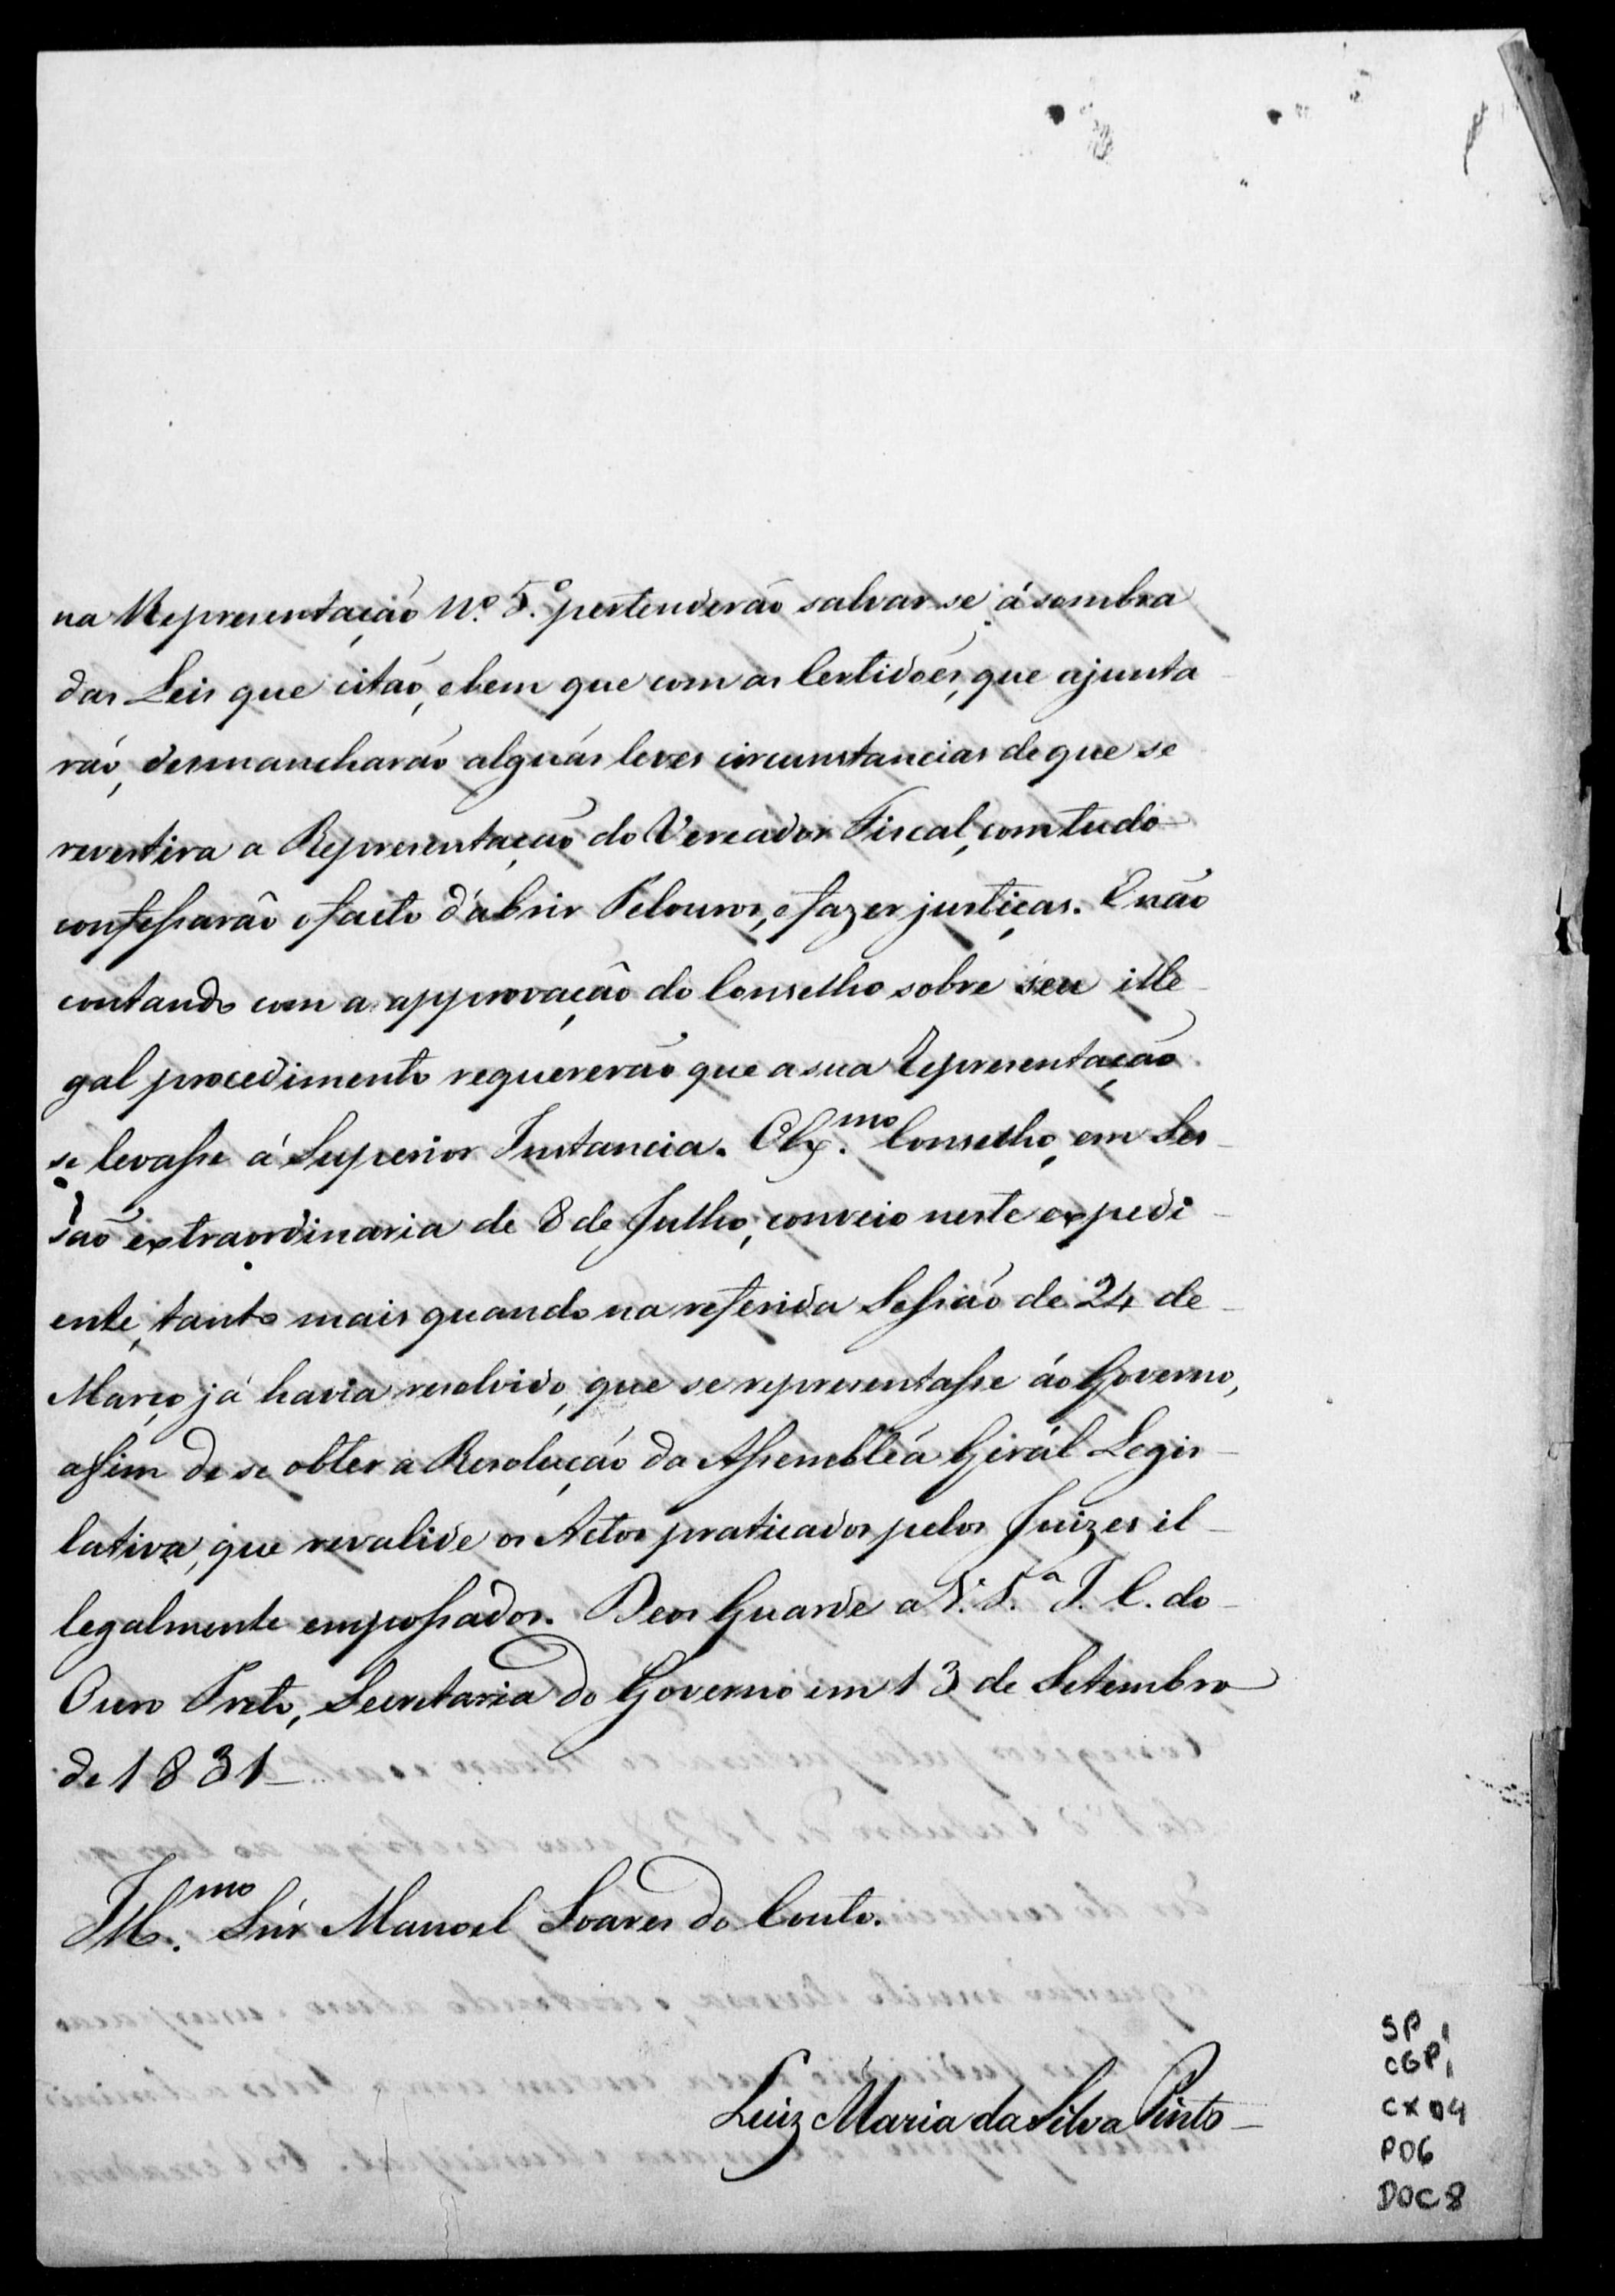 na Representação N.º 5.º pertenderão salvar-se á sombra
das Leis que citão, e bem que com as Certidões, que ajunta
rão, desmancharão alguãs leves circunstancias de que se
revestira a Representação do Vereador Fiscal, com tudo
confessarão o facto d'abrir Pelouros, e fazer justiças. E não
contando com a approvação do Conselho sobre seu ille-
gal procedimento requererão que a sua Representação
se levasse á Superior Instancia. O Ex.mo Conselho, em Ses-
são extraordinaria de 8 de Julho, conveio neste expedi-
ente, tanto mais quando na referida Sessão de 24 de
Março já havia resolvido, que se representasse áo Governo,
afim de se obter a Resolução da Assembléa Geral Legis-
lativa, que revalide os Actos praticados pelos Juizes il-
legalmente empossados. Deos Guarde a V. S.ª I. C. do
Ouro Preto, Secretaria do Governo em 13 de Setembro
de 1831-
Ill.mo Snr Manoel Soares do Couto.
Luiz Maria da Silva Pinto-
SP 1
CGP 1
CX 04
P06
DOC 8